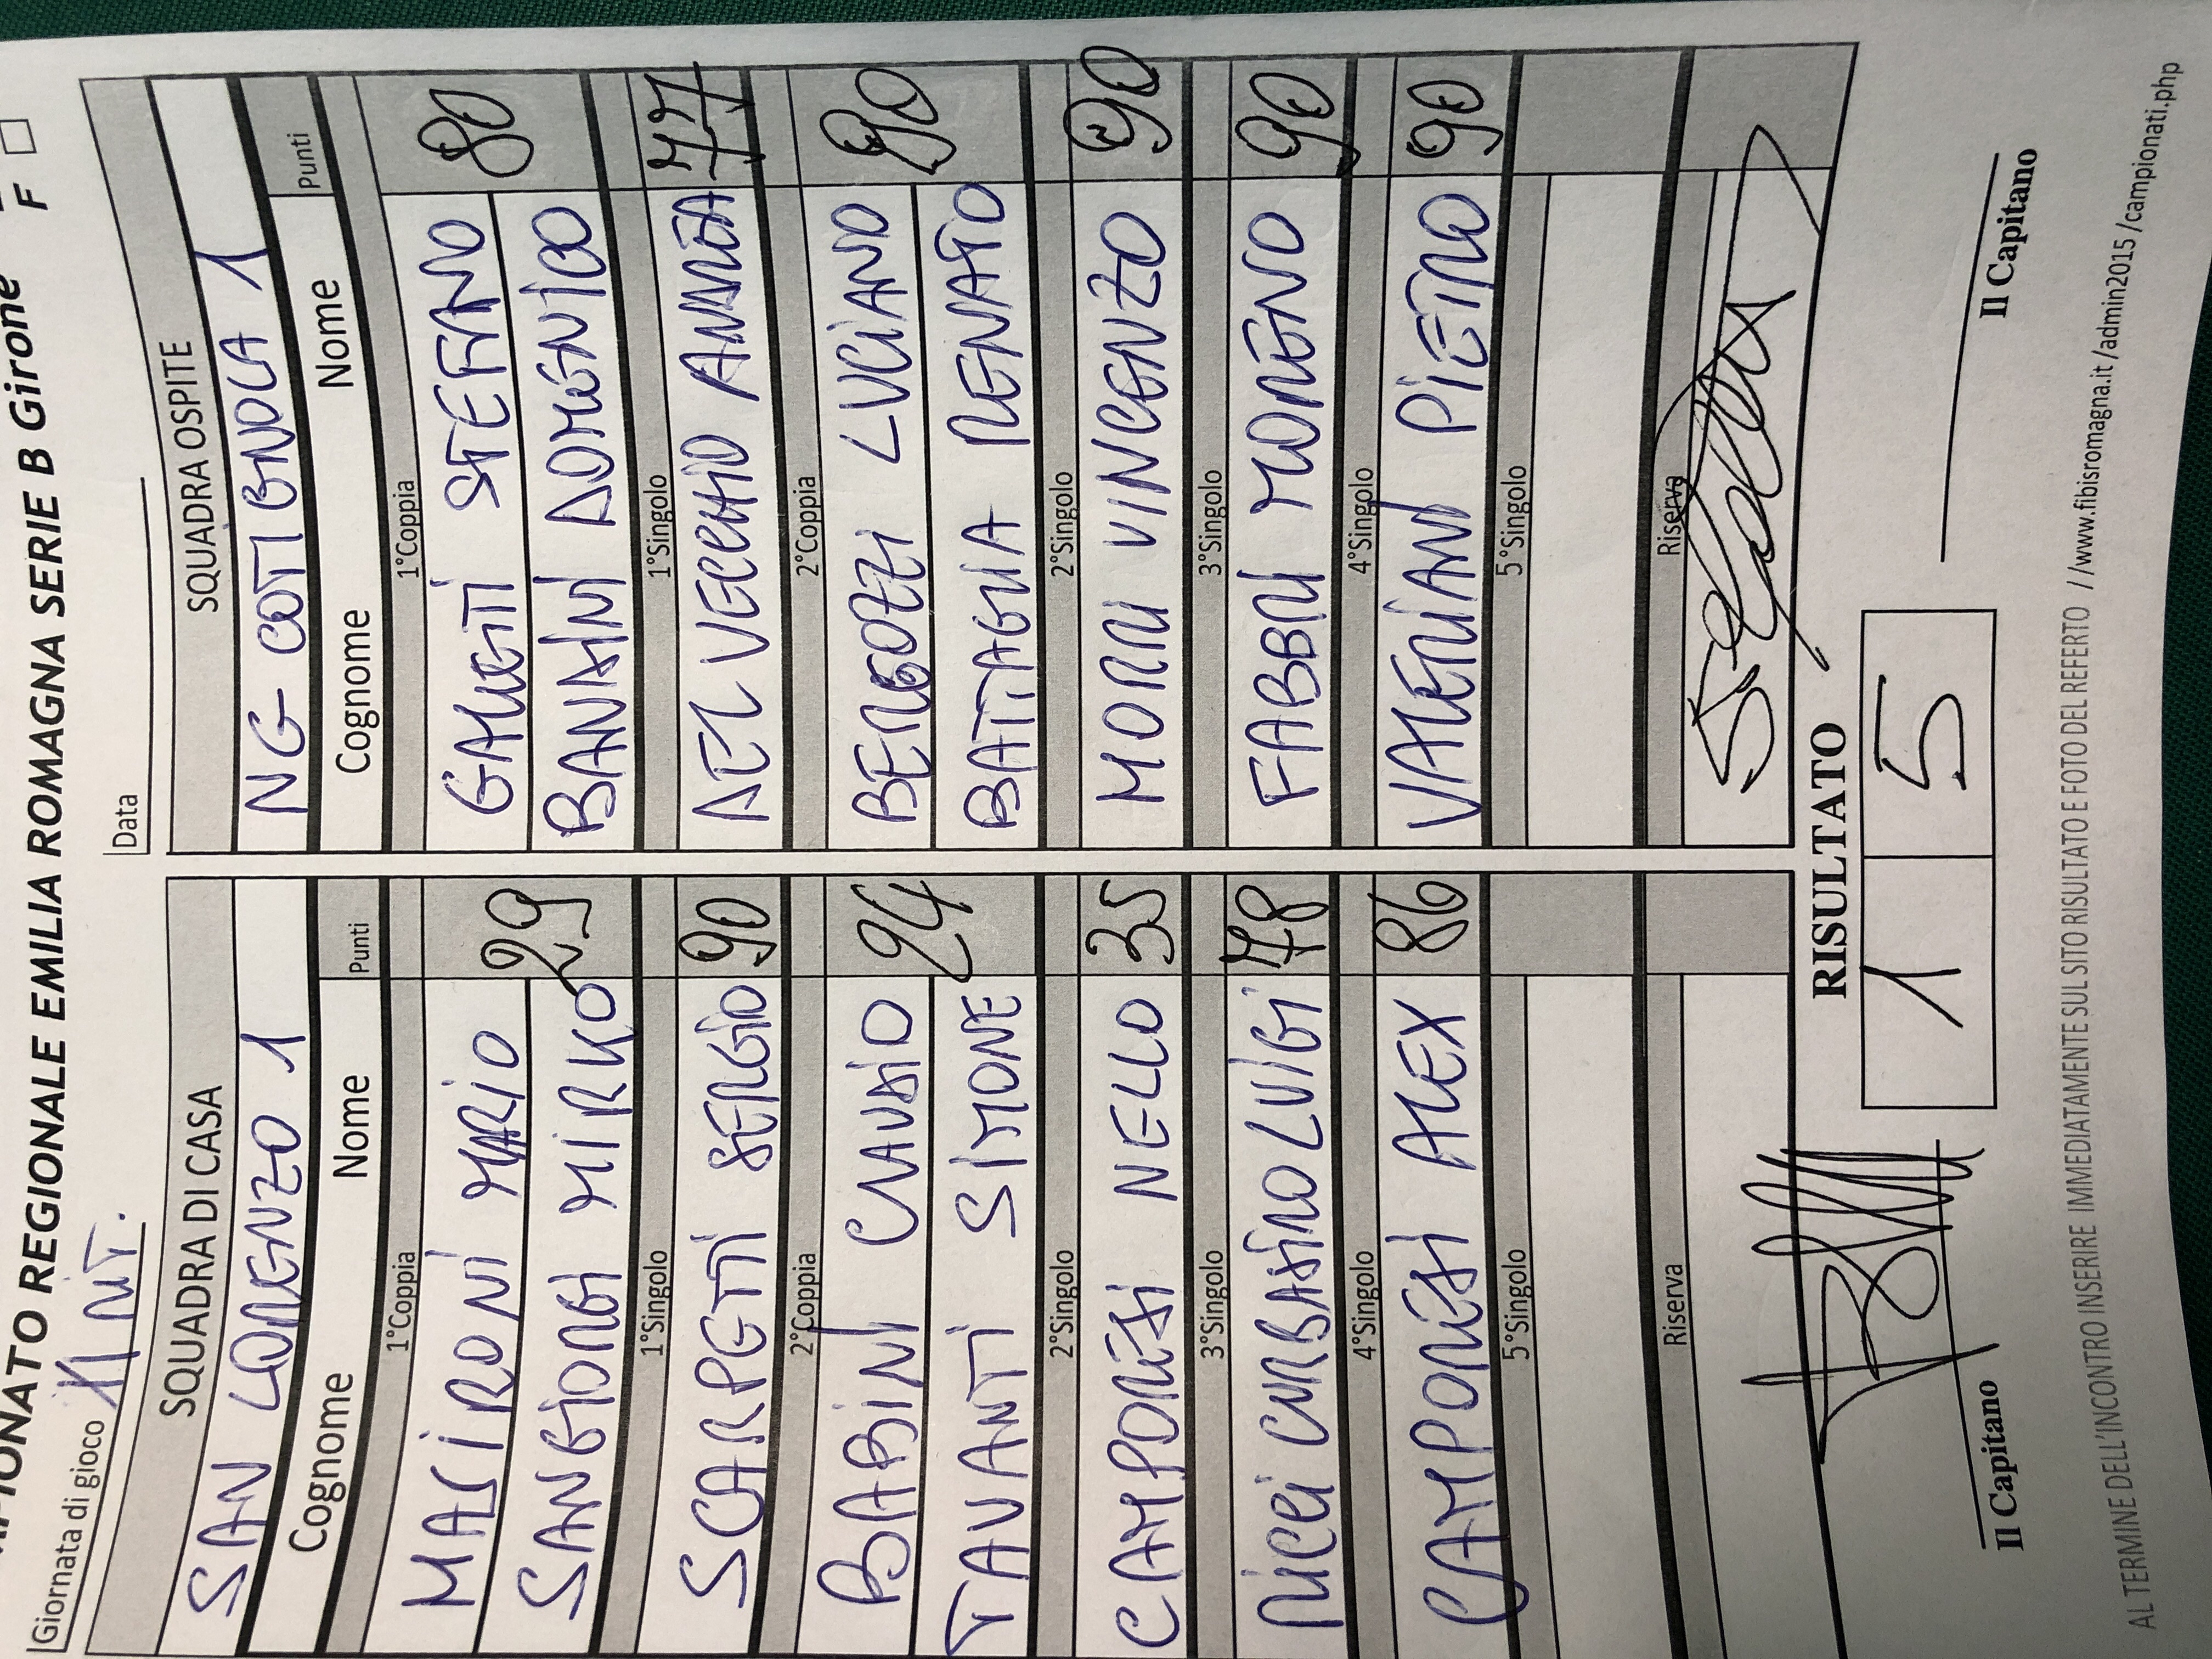 CAMPIONATO REGIONALE EMILIA ROMAGNA SERIE B Girone F
Giornata di gioco
Data
SQUADRA DI CASA
SAN LORENZO 1
Cognome Nome Punti
1°Coppia
MASIRONI MARIO
29
SANGIORGI MIRKO
1°Singolo
SCARPETTI SERGIO 90
2°Coppia
BABINI CLAUDIO
24
TAVANTI SIMONE
2°Singolo
CAMPORESI NELLO 35
3°Singolo
RICCI CURBASTRO LUIGI 78
4°Singolo
CAMPORESI ALEX 86
5°Singolo
Riserva
SQUADRA OSPITE
NG COTIGNOLA 1
Cognome Nome Punti
1°Coppia
GALLETTI STEFANO
80
BANDINI DOMENICO
1°Singolo
DEL VECCHIO ANDREA 77
2°Coppia
BERGOZZI LUCIANO
80
BATTAGLIA RENATO
2°Singolo
MORINI VINCENZO 90
3°Singolo
FABBRI MORENO 90
4°Singolo
VALERIANI PIETRO 90
5°Singolo
Riserva
RISULTATO
1 5
Il Capitano
Il Capitano
AL TERMINE DELL'INCONTRO INSERIRE IMMEDIATAMENTE SUL SITO RISULTATO E FOTO DEL REFERTO //www.fibisromagna.it /admin2015 /campionati.php